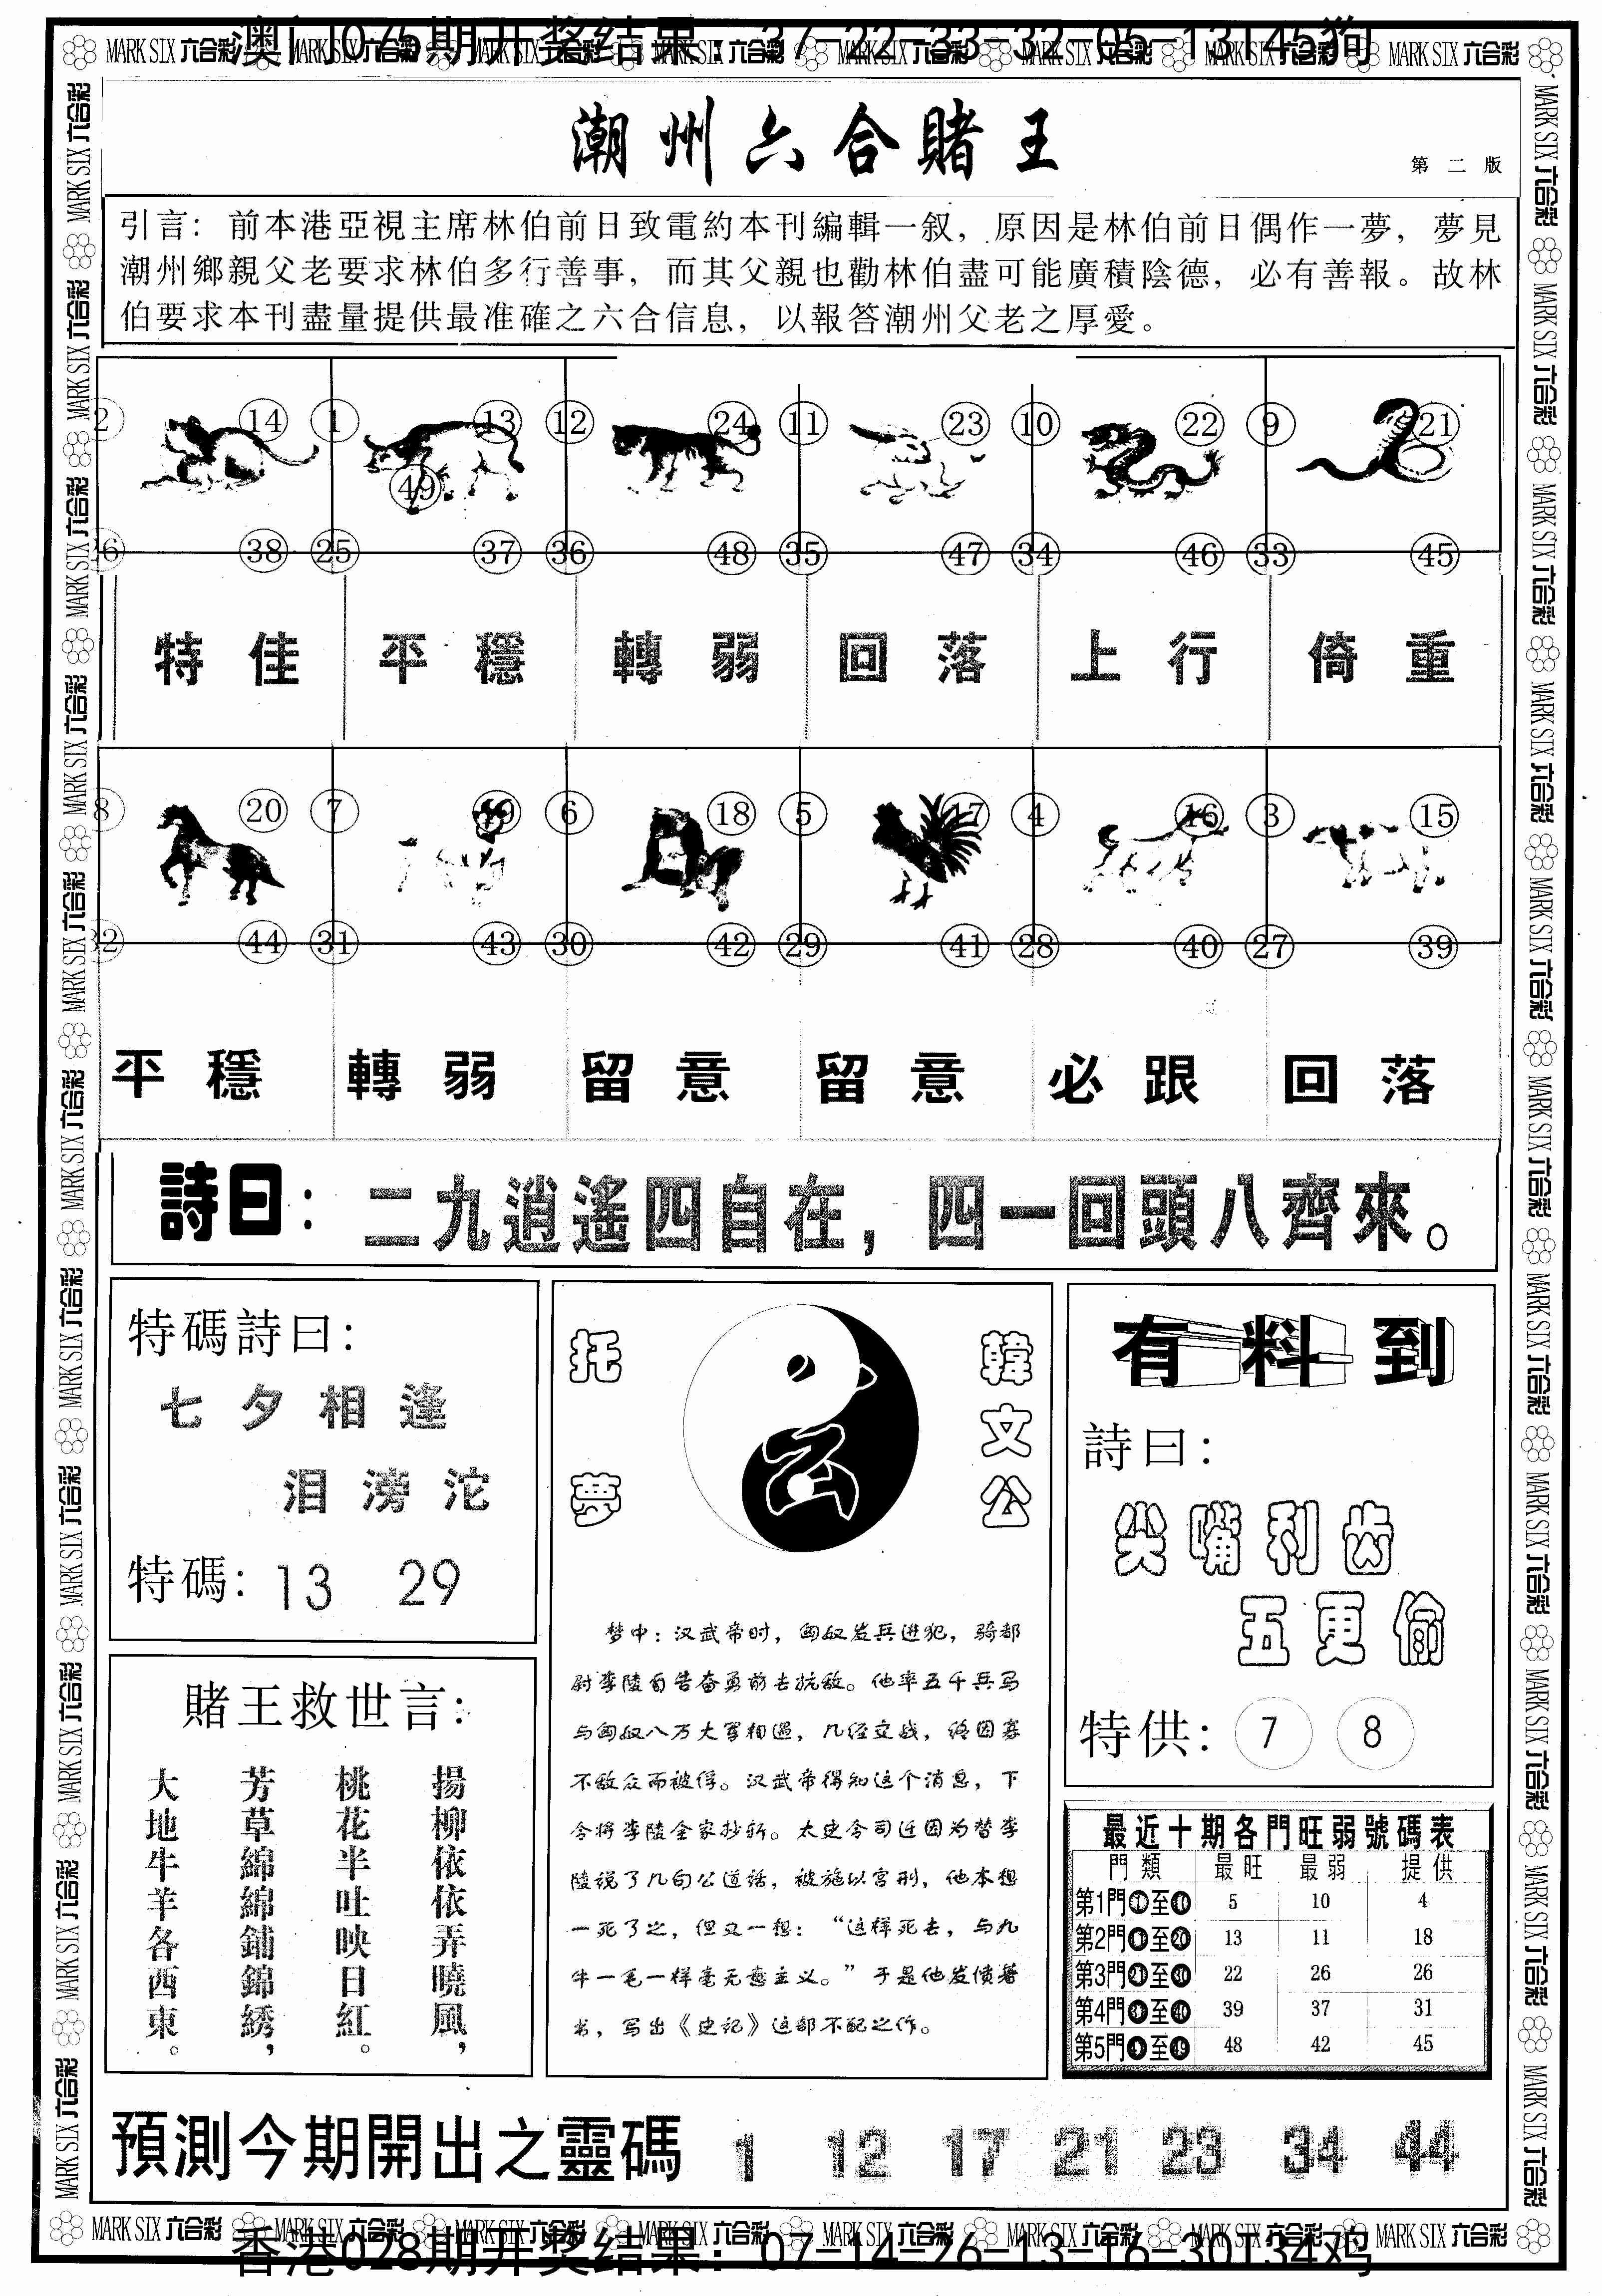 澳门075期开奖结果：37-22-33-32-05-13T45狗
MARK SIX 六合彩 MARK SIX 六合彩 MARK SIX 六合彩 MARK SIX 六合彩 MARK SIX 六合彩 MARK SIX 六合彩 MARK SIX 六合彩 MARK SIX 六合彩
潮州六合賭王
第二版
引言：前本港亞視主席林伯前日致電約本刊編輯一叙，原因是林伯前日偶作一夢，夢見
潮州鄉親父老要求林伯多行善事，而其父親也勸林伯盡可能廣積陰德，必有善報。故林
伯要求本刊盡量提供最准確之六合信息，以報答潮州父老之厚愛。
2 14 1 13 12 24 11 23 10 22 9 21
49
26 38 25 37 36 48 35 47 34 46 33 45
特佳 平穩 轉弱 回落 上行 倚重
8 20 7 19 6 18 5 17 4 16 3 15
32 44 31 43 30 42 29 41 28 40 27 39
平穩 轉弱 留意 留意 必跟 回落
詩曰：二九逍遙四自在，四一回頭八齊來。
特碼詩曰：
七夕相逢
泪滂沱
特碼：13 29
賭王救世言：
揚柳依依弄曉風，
桃花半吐映日紅。
芳草綿綿鋪錦綉，
大地牛羊各西東。
韓文公
托夢
梦中：汉武帝时，匈奴发兵进犯，骑都
尉李陵自告奋勇前去抗敌。他率五千兵马
与匈奴八万大军相遇，几经交战，终因寡
不敌众而被俘。汉武帝得知这个消息，下
令将李陵全家抄斩。太史令司迁因为替李
陵说了几句公道话，被施以宫刑，他本想
一死了之，但又一想：“这样死去，与九
牛一毛一样毫无意主义。”于是他发愤著
书，写出《史记》这部不配之作。
有料到
詩曰：
尖嘴利齿
五更偷
特供：7 8
最近十期各門旺弱號碼表
門類 最旺 最弱 提供
第1門①至⑩ 5 10 4
第2門⑪至⑳ 13 11 18
第3門㉑至㉚ 22 26 26
第4門㉛至㊵ 39 37 31
第5門㊶至㊾ 48 42 45
預測今期開出之靈碼 1 12 17 21 23 34 44
MARK SIX 六合彩 MARK SIX 六合彩 MARK SIX 六合彩 MARK SIX 六合彩 MARK SIX 六合彩 MARK SIX 六合彩 MARK SIX 六合彩 MARK SIX 六合彩
香港028期开奖结果：07-14-26-13-16-30T34鸡